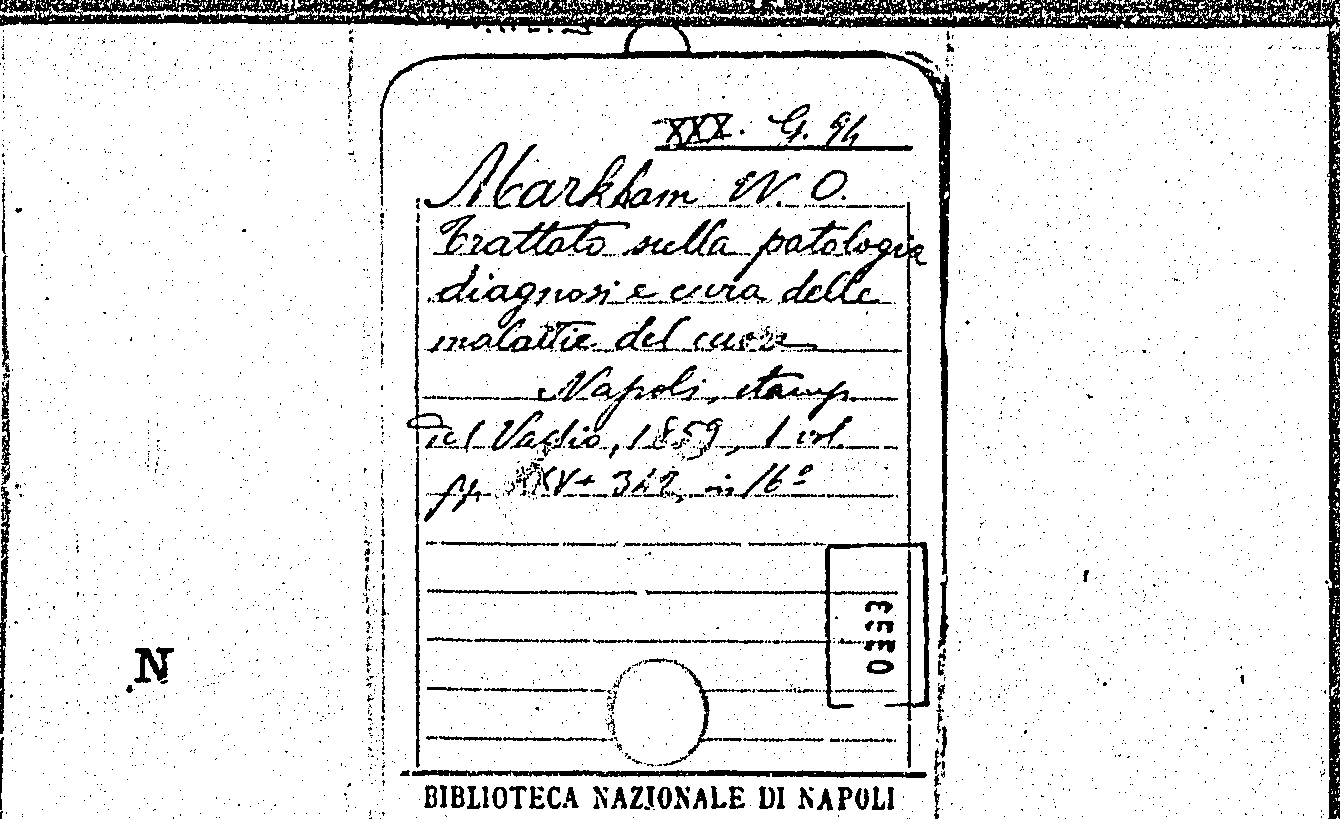 XXX. G. 94
Markham W. O.
Trattato sulla patologia
diagnosi e cura delle
malattie del cuore
Napoli, stamp.
del Vaglio, 1859, 1 vol.
pp. in 16º
N
BIBLIOTECA NAZIONALE DI NAPOLI